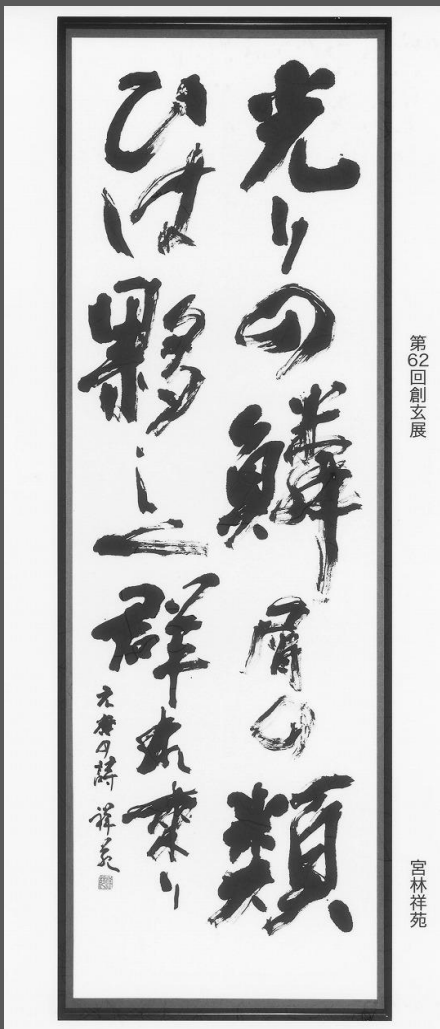 光りの鱗屑の類
ひは夥し群れ来り
元麿の詩 祥苑
第62回創玄展
宮林祥苑